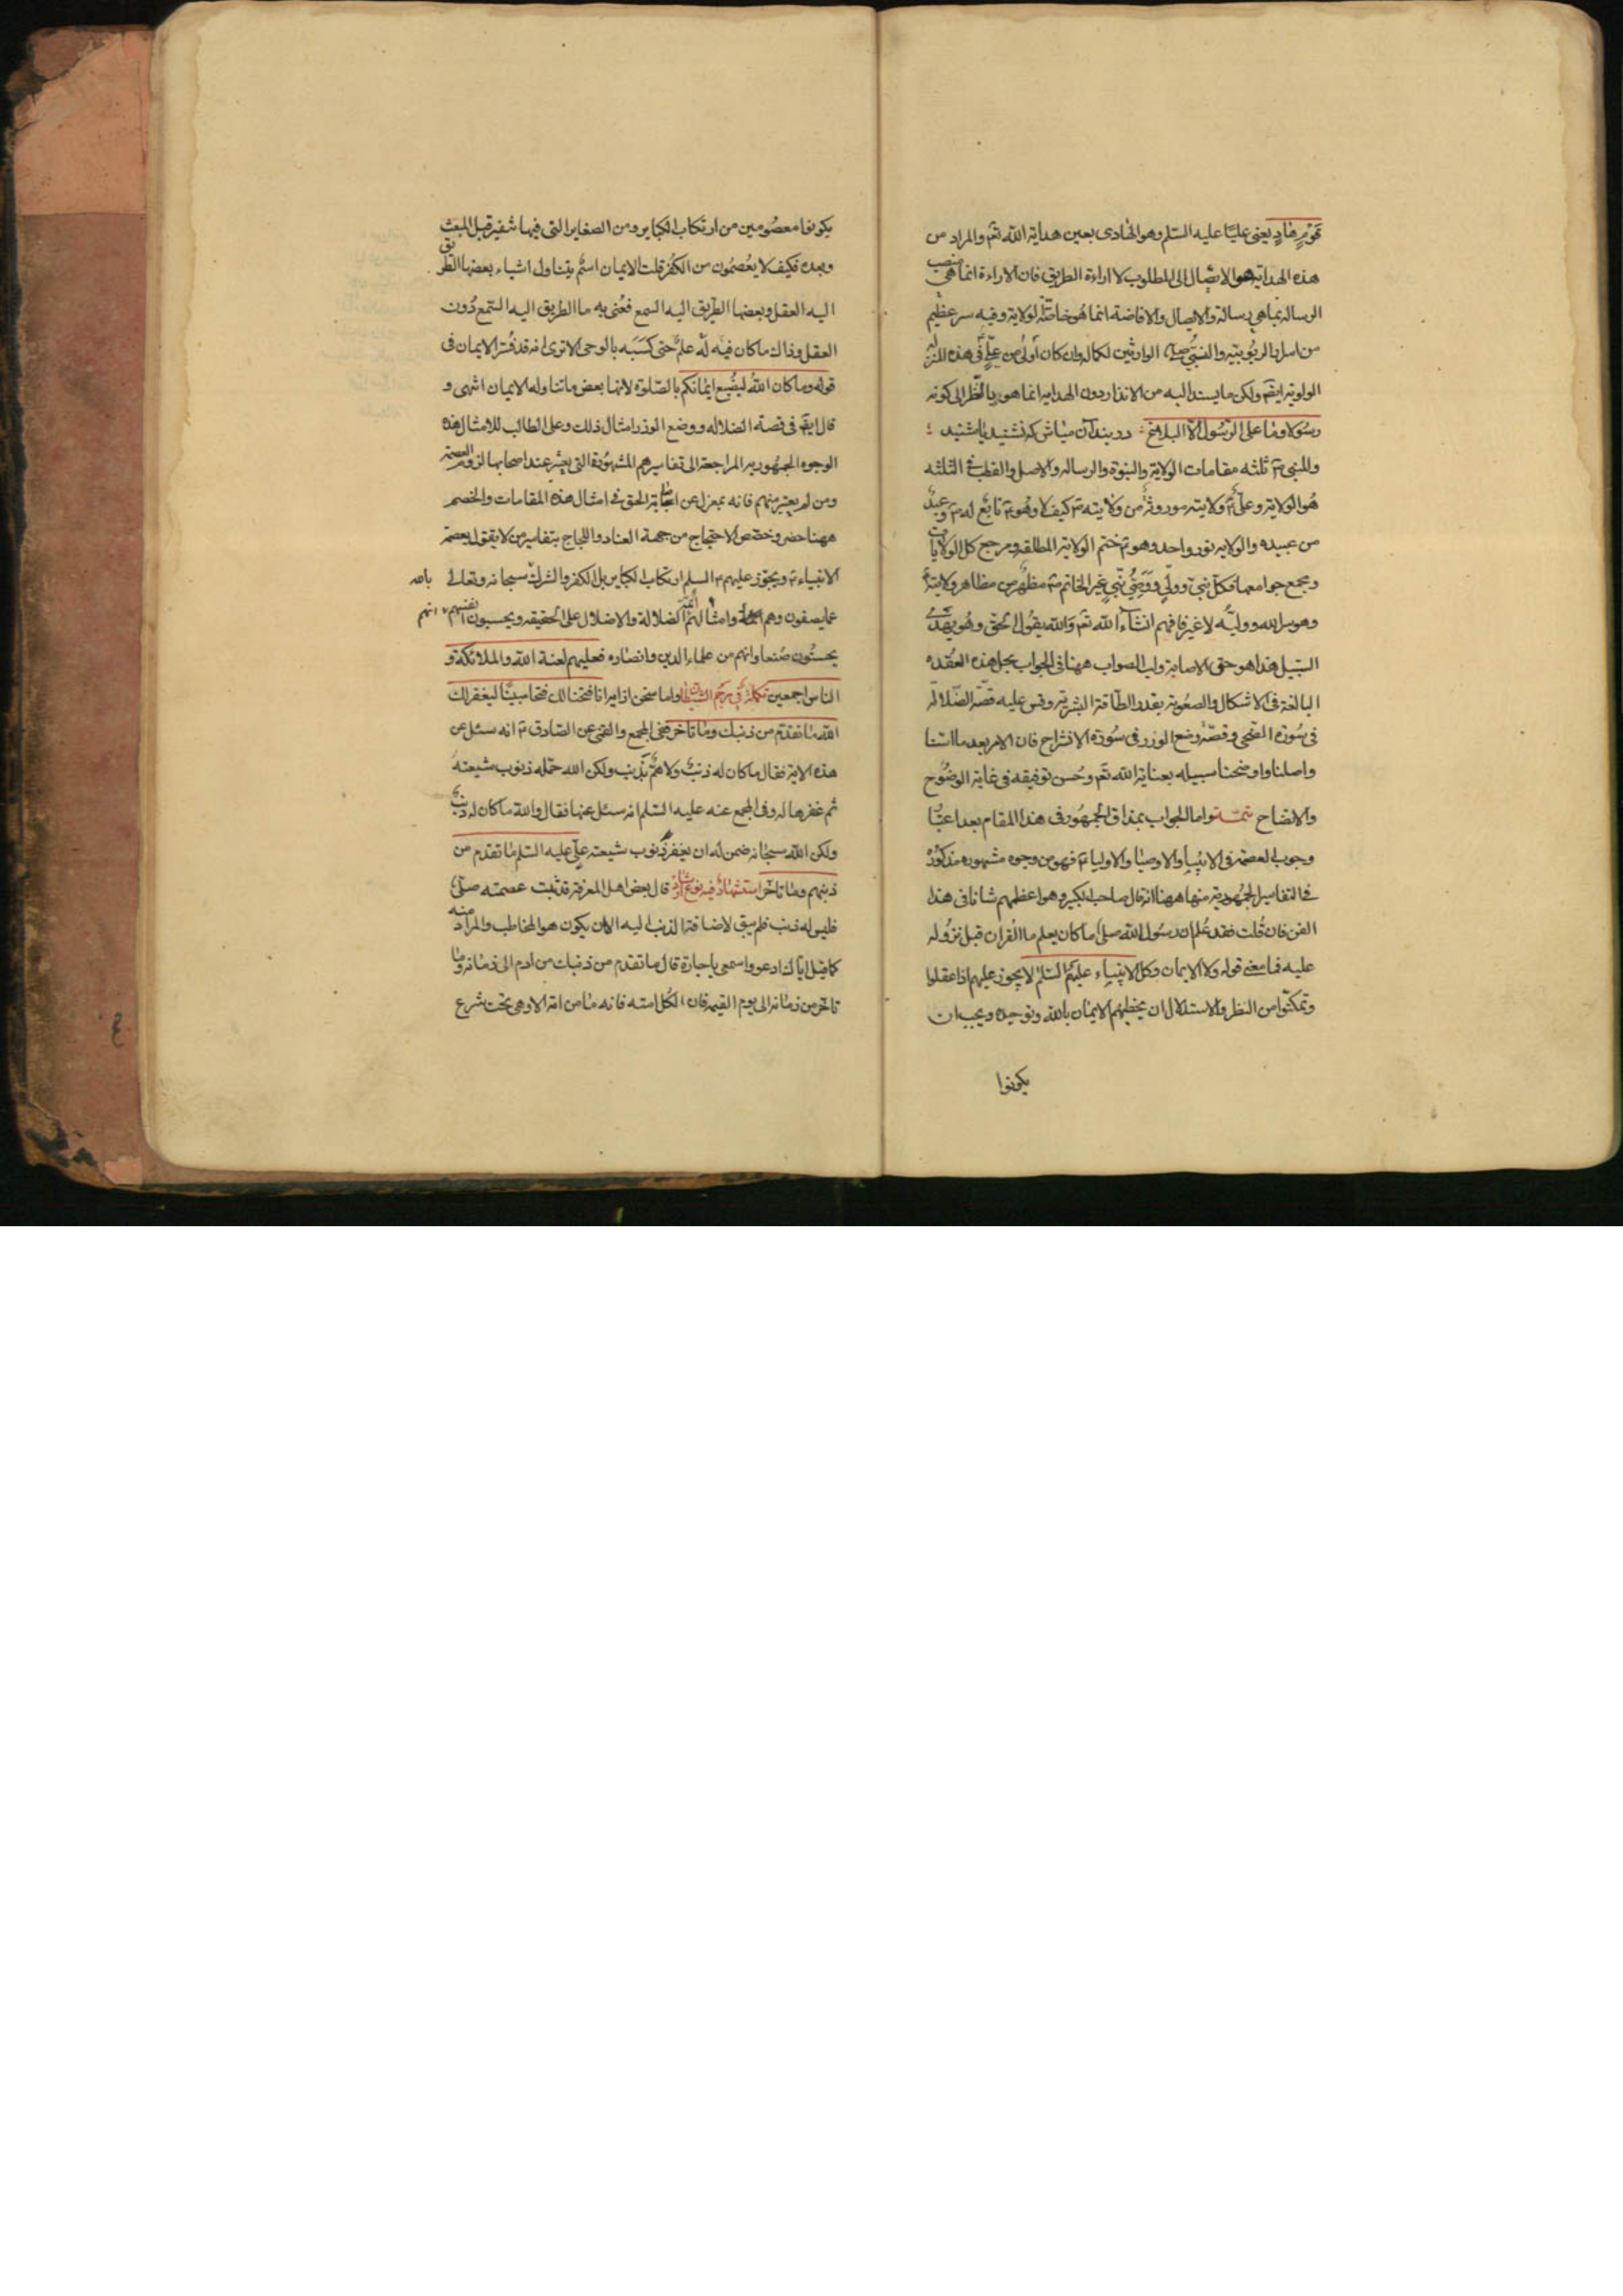 قوم هاد يعنى عليا عليه السلم وهو الهادى بعين هداية الله تعم والمراد من
هذه الهداية هو الايصال الى المطلوب لا اراءة الطريق فان الاراءة انما هى منصب
الرسالة بما هى رسالة والايصال والافاضة انما هو خاصّة الولاية وفيه سر عظيم
من اسرار الربوبية والنبى الوارثين لكماله وان كان اولى من علىّ فى هذه المنزلة
الولوية ايضم ولكن ما يسند اليه من الانذار دون الهداية انما هو بالنّظر الى كونه
رسولا وما على الرسول الا البلاغ دربند آن مباش كه نشنيد يا شنيد
وللنبى ثلثه مقامات الولاية والنبوة والرسالة والاصل والقطب فى الثلثه
هو الولاية وعلى ولايته موروثة من ولايته كيف لا وهو تابع له وعبد
من عبيده والولاية نور واحد وهو ختم الولاية المطلقة ومرجع كل الولايات
ومجمع جوامعها فكل نبى وولى ووصى نبى غير الخاتم مظهر من مظاهر ولايته
وهو سر الله ووليه لا غير فافهم انشاء الله تعم والله يقول الحق وهو يهدى
السبيل هذا هو حق الاصابة ولب الصواب ههنا فى الجواب بحل هذه العقده
البالغة فى الاشكال والصعوبة بقدر الطاقة البشرية وقس عليه قصّة الضّلالة
فى سورة الضحى وقصّة وضع الوزر فى سورة الانشراح فان الامر بعد ما اسّسنا
واصلنا واوضحنا سبيله بعناية الله تعم وحسن توفيقه فى غاية الوضوح
والاتضاح تتمّة واما الجواب بمذاق الجمهور فى هذا المقام بعد اعتبار
وجوب العصمة فى الانبياء والاوصيا والاولياء فهو من وجوه مشهوره مذكورة
فى التفاسير الجمهورية منها ههنا انه قال صاحب الكبير وهو اعظمهم شانا فى هذا
الفن فان قلت فقد علم ان رسول الله صلى ما كان يعلم ما القران قبل نزوله
عليه فما معنى قوله ولا الايمان وكل الانبياء عليهم السّلم لا يجوز عليهم اذا عقلوا
وتمكنوا من النظر والاستدلال ان يخطيهم الايمان بالله وتوحيده ويجب ان
يكونوا
يكونوا معصومين من ارتكاب الكباير ومن الصغاير التى فيها شفير قبل المبعث
وبعده فكيف لا يعصمون من الكفر قلت الايمان اسم يتناول اشياء بعضها الطريق
اليه العقل وبعضها الطريق اليه السمع فعُنى به ما الطريق اليه السّمع دون
العقل وذاك ما كان فيه له علم حتى كسبه بالوحى الا ترى انه قد فسّر الايمان فى
قوله وما كان الله ليضيع ايمانكم بالصّلوة لانها بعض ما تناوله الايمان انتهى و
قال ايضم فى قصة الضلاله ووضع الوزر امثال ذلك وعلى الطالب للامثال هذه
الوجوه الجمهورية المراجعة الى تفاسيرهم المشهورة التى يعتبر عند اصحابها لزوم العصمة
ومن لم يعتبر منهم فانه بمعزل عن اصابة الحق فى امثال هذه المقامات والخصم
ههنا حضر وخصّ الاحتجاج من جهة العناد واللجاج بتفاسير من لا يقول بعصمة
الانبياء ويجوّز عليهم السلم ارتكاب الكباير بل الكفر والشرك سبحانه وتعالى بالله
عما يصفون وهم وامثالهم ائمّة الضلالة والاضلال على الحقيقه ويحسبون انفسهم انهم
يحسنون صنعا وانهم من علماء الدين وانصاره فعليهم لعنة الله والملائكة و
الناس اجمعين تكملة فى رجم الشيطان واما سخن از اميرا انا فتحنا لك فتحا مبينا ليغفر لك
الله ما تقدّم من ذنبك وما تاخر ففى المجمع والقمى عن الصّادق انه سئل عن
هذه الاية فقال ما كان له ذنب ولا همّ بذنب ولكن الله حمّله ذنوب شيعته
ثم غفرها له وفى المجمع عنه عليه السّلم انه سئل عنها فقال والله ما كان له ذنب
ولكن الله سبحانه ضمن له ان يغفر ذنوب شيعته علىّ عليه السّلم ما تقدم من
ذنبهم وما تاخر استشهاد فيه نوع قال بعض اهل المعرفة قد ثبت عصمته صلى
فليس له ذنب فلم يبق لاضافة الذنب اليه الا ان يكون هو المخاطب والمراد منه
كما قيل اياك ادعو واسمعى يا جارة قال ما تقدم من ذنبك من ادم الى زمانه وما
تاخر من زمانه الى يوم القيمة فان الكل امته فانه ما من امّة الا وهى تحت شرع